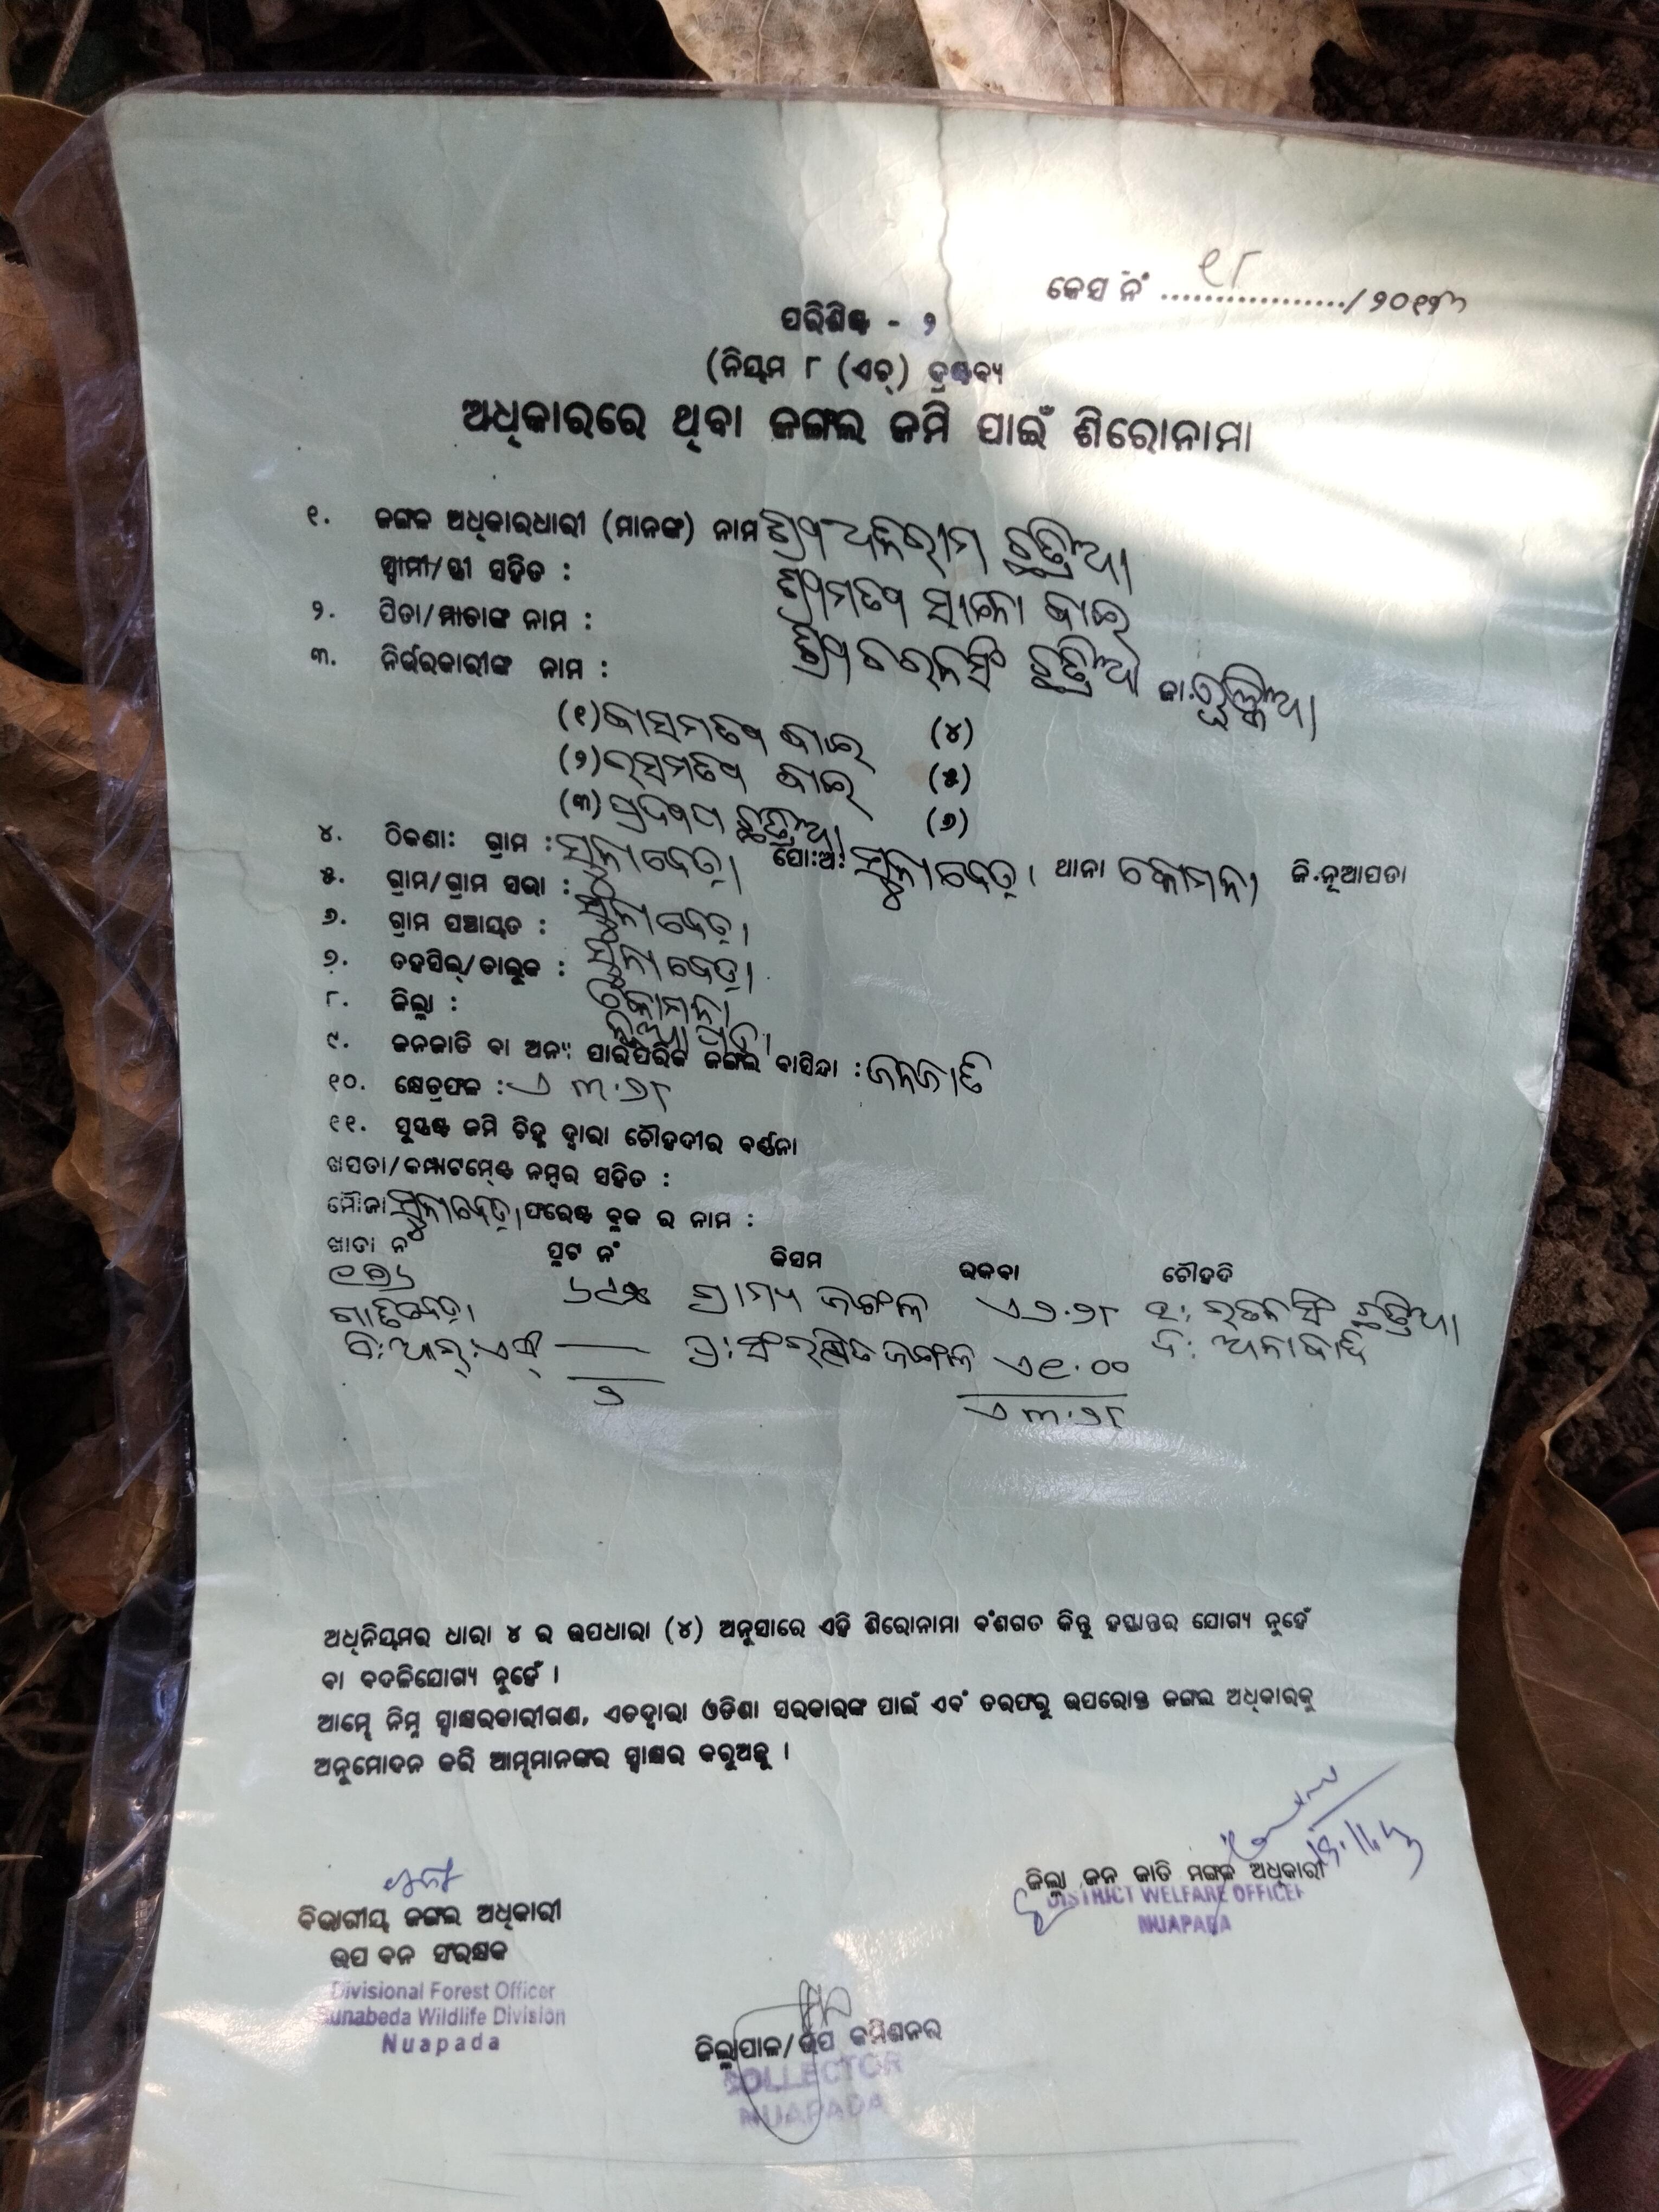 କେସ ନଂ ୧୮ / ୨୦୧୩
ପରିଶିଷ୍ଟ - ୨
(ନିୟମ ୮ (ଏଚ୍) ଦ୍ରଷ୍ଟବ୍ୟ
ଅଧିକାରରେ ଥିବା ଜଙ୍ଗଲ ଜମି ପାଇଁ ଶିରୋନାମା
୧. ଜଙ୍ଗଲ ଅଧିକାରଧାରୀ (ମାନଙ୍କ) ନାମ ଶ୍ରୀ ଛତ୍ରିଆ
ସ୍ୱାମୀ/ସ୍ତ୍ରୀ ସହିତ : ଶ୍ରୀମତୀ ବାଇ
୨. ପିତା/ମାତାଙ୍କ ନାମ : ଶ୍ରୀ ଚରନସିଂ ଛତ୍ରିଆ ଜା. ଭୁଞ୍ଜିଆ
୩. ନିର୍ଭରକାରୀଙ୍କ ନାମ :
(୧) ବାସମତୀ ବାଇ (୪)
(୨) ରସମତୀ ବାଇ (୫)
(୩) ପ୍ରଦୀପ ଛତ୍ରିଆ (୬)
୪. ଠିକଣା: ଗ୍ରାମ : ସୁନାବେଡ଼ା ପୋ:ଅ: ସୁନାବେଡ଼ା ଥାନା କୋମନା ଜି.ନୂଆପଡା
୫. ଗ୍ରାମ/ଗ୍ରାମ ସଭା : ସୁନାବେଡ଼ା
୬. ଗ୍ରାମ ପଞ୍ଚାୟତ : ସୁନାବେଡ଼ା
୭. ତହସିଲ୍/ତାଲୁକ : କୋମନା
୮. ଜିଲ୍ଲା : ନୂଆପଡ଼ା
୯. ଜନଜାତି ବା ଅନ୍ୟ ପାରଂପରିକ ଜଙ୍ଗଲ ବାସିନ୍ଦା : ଜନଜାତି
୧୦. କ୍ଷେତ୍ରଫଳ : ଏ ୩.୬୮
୧୧. ସୁସ୍ପଷ୍ଟ ଜମି ଚିହ୍ନ ଦ୍ୱାରା ଚୌହଦୀର ବର୍ଣ୍ଣନା
ଖସଡା/କମ୍ପାଟମେଣ୍ଟ ନମ୍ବର ସହିତ :
ମୌଜା ସୁନାବେଡ଼ା ଫରେଷ୍ଟ ବ୍ଲକ ର ନାମ :
ଖାତା ନଂ ପ୍ଲଟ ନଂ କିସମ ରକବା ଚୌହଦି
ଗ୍ରାମ୍ୟ ଜଙ୍ଗଲ ଏ ୨.୬୮ ଉ: ରତନସିଂ ଛତ୍ରିଆ
ପ୍ର: ସଂରକ୍ଷିତ ଜଙ୍ଗଲ ଏ ୧.୦୦ ଦ: ଅନାବାଦି
୨ ଏ ୩.୬୮
ଅଧିନିୟମର ଧାରା ୪ ର ଉପଧାରା (୪) ଅନୁସାରେ ଏହି ଶିରୋନାମା ବଂଶଗତ କିନ୍ତୁ ହସ୍ତାନ୍ତର ଯୋଗ୍ୟ ନୁହେଁ
ବା ବଦଳିଯୋଗ୍ୟ ନୁହେଁ ।
ଆମ୍ଭେ ନିମ୍ନ ସ୍ୱାକ୍ଷରକାରୀଗଣ, ଏତଦ୍ୱାରା ଓଡିଶା ସରକାରଙ୍କ ପାଇଁ ଏବଂ ତରଫରୁ ଉପରୋକ୍ତ ଜଙ୍ଗଲ ଅଧିକାରକୁ
ଅନୁମୋଦନ କରି ଆମ୍ଭମାନଙ୍କର ସ୍ୱାକ୍ଷର କରୁଅଛୁ ।
ଜିଲ୍ଲା ଜନ ଜାତି ମଙ୍ଗଳ ଅଧିକାରୀ
DISTRICT WELFARE OFFICER
NUAPADA
ବିଭାଗୀୟ ଜଙ୍ଗଲ ଅଧିକାରୀ
ଉପ ବନ ସଂରକ୍ଷକ
Divisional Forest Officer
Sunabeda Wildlife Division
Nuapada
ଜିଲ୍ଲାପାଳ/ଉପ କମିଶନର
COLLECTOR
NUAPADA